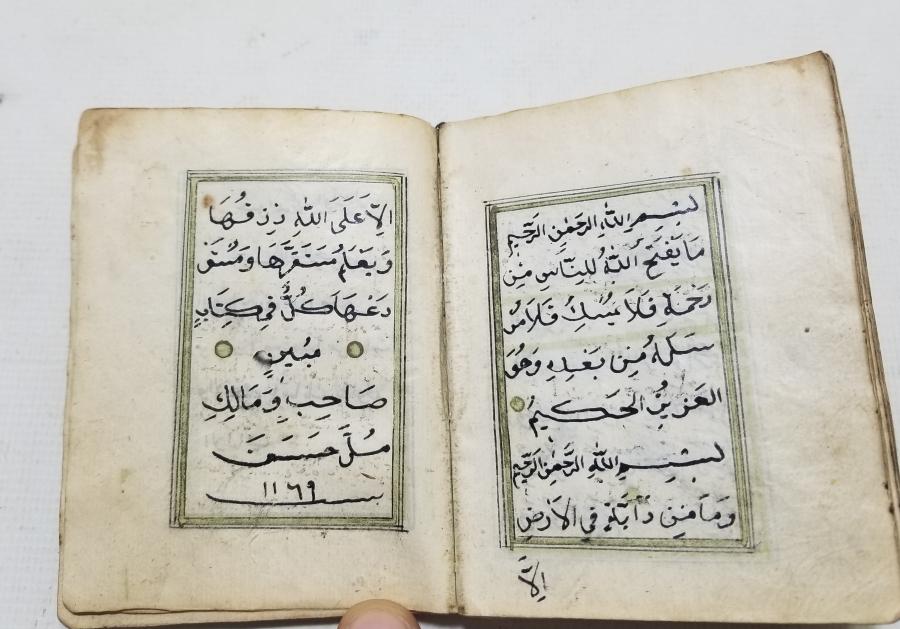 بِسْمِ اللهِ الرَّحْمٰنِ الرَّحٖيمِ
مَا يَفْتَحِ اللهُ لِلنَّاسِ مِنْ
رَحْمَةٍ فَلَا مُمْسِكَ فَلَا مُرْ
سِلَ لَهُ مِنْ بَعْدِهِ وَهُوَ
الْعَزِيزُ الْحَكِيمُ
بِسْمِ اللهِ الرَّحْمٰنِ الرَّحٖيمِ
وَمَا مِنْ دَآبَّةٍ فِي الْاَرْضِ
اِلَّا
اِلَّا عَلَى اللهِ رِزْقُهَا
وَيَعْلَمُ مُسْتَقَرَّهَا وَمُسْتَوْ
دَعَهَا كُلٌّ فِي كِتَابٍ
مُبِينٍ
صَاحِب وَمَالِكِ
مُلَّا حَسَنْ
سنة ١١٦٩